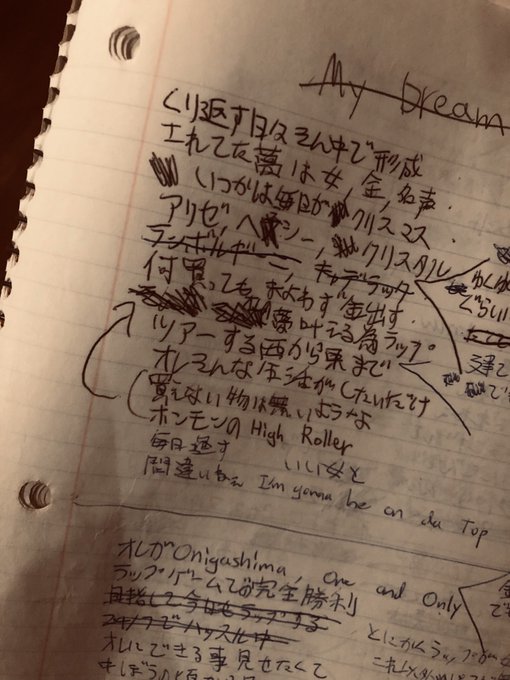 My Dream
くり返す日々そん中で形成
されてた夢は女、金、名声
いつかは毎日がクリスマス
アリゼ、ヘネシー、クリスタル
ランボルギーニ、キャデラック
何買ってもまよわず金出す
夢叶える為ラップ
ツアーする西から東まで
オレそんな生活がしたいだけ
買えない物は無いようなよ
ホンモンのHigh Roller
毎日過す いい女と
間違いねぇ I'm gonna be on da Top
オレがOnigashima, One and Only
ラップゲームで完全勝利
目指して今日もラップする
24/7でハッスル中
とにかくラップが
オレにできる事見せたくて